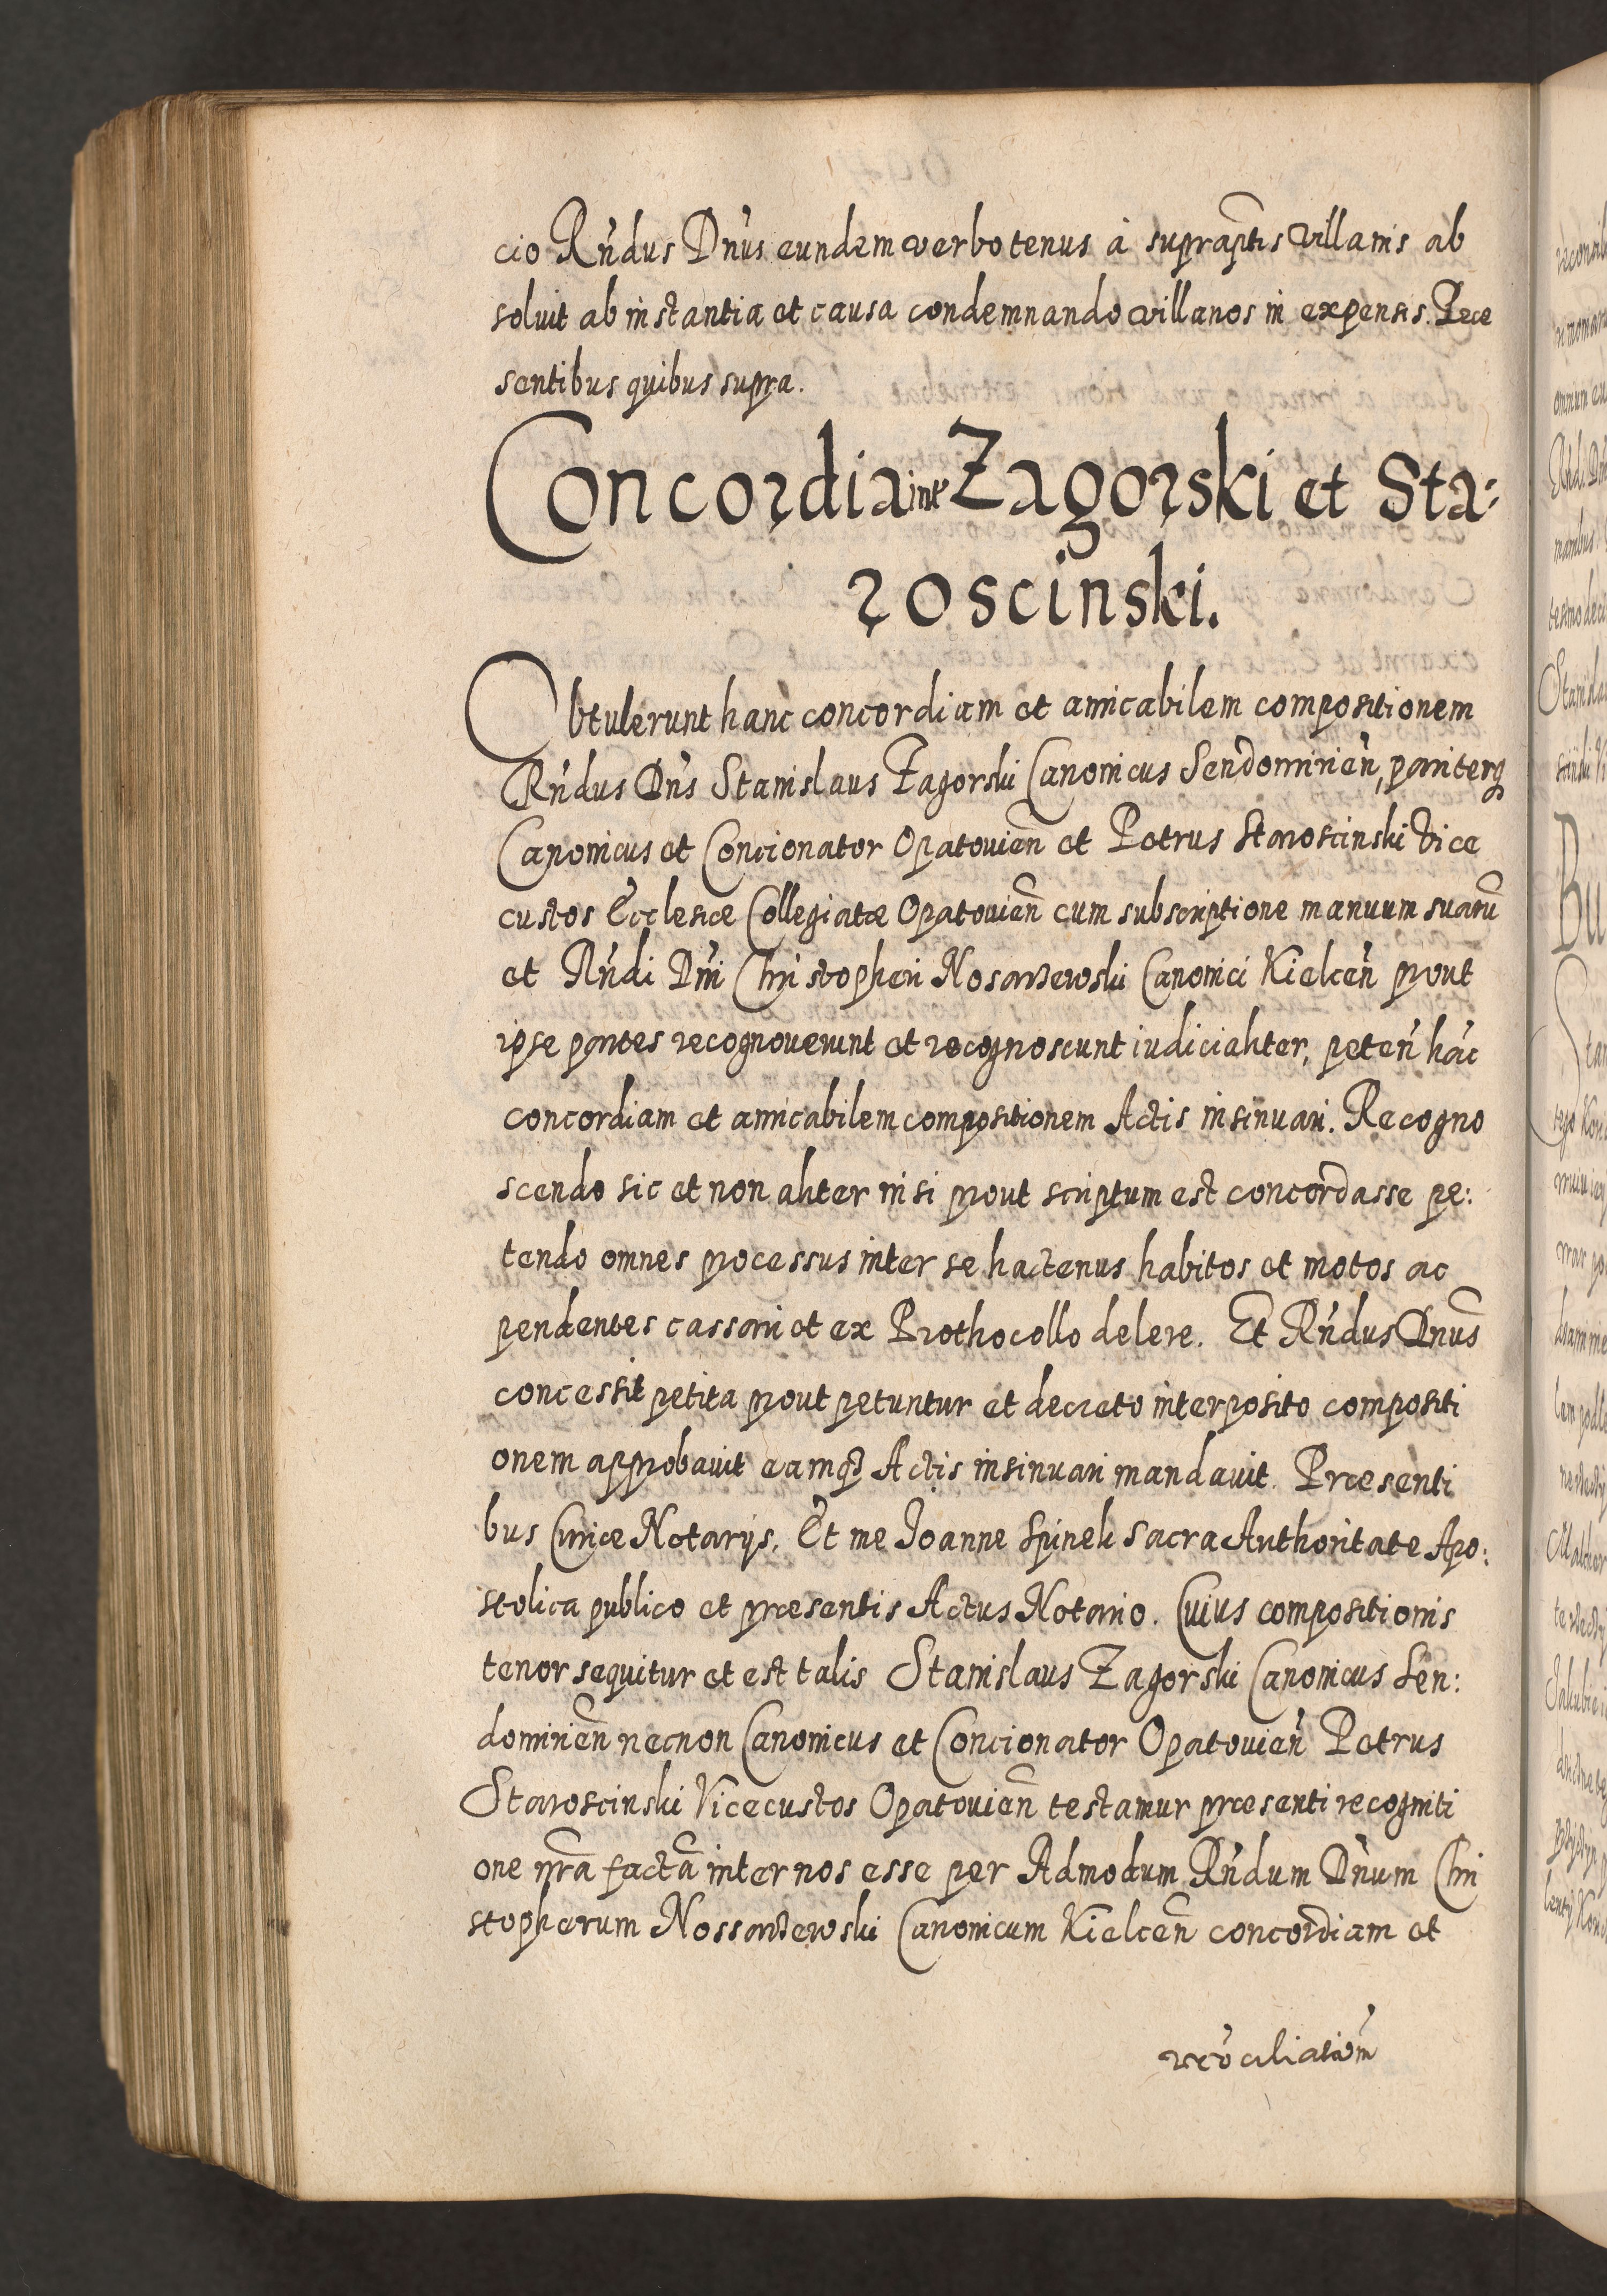 cio Rńdus Dńus eundem verbotenus à supraptis villanis ab
soluit ab instantia et causa condemnando villanos in expensis. Præ
sentibus quibus supra.
Concordia inter Zagorski et Sta:
roscinski.
Obtulerunt hanc concordiam et amicabilem compositionem
Rńdus Dńs Stanislaus Zagorski Canonicus Sendomirień, pariterq
Canonicus et Concionator Opatovień et Petrus Staroscinski Vice
custos Ecclesiæ Collegiatæ Opatovień cum subscriptione manuum suarū
et Rńdi Dńi Christopheri Nosarzewski Canonici Kielceń prout
ipse partes recognoverunt et recognoscunt iudicialiter, peteń hāc
concordiam et amicabilem compositionem Actis insinuari. Recogno
scendo sic et non aliter nisi prout scriptum est concordasse pe:
tendo omnes processus inter se hactenus habitos et motos ac
pendentes cassari et ex Prothocollo delere. Et Rńdus Dnus
concessit petita prout petuntur et decreto interposito compositi
onem approbavit eamq Actis insinuari mandavit. Præsenti
bus Curiæ Notarijs. Et me Joanne Spinek sacra Authoritate Apo:
stolica publico et præsentis Actus Notario. Cuius compositionis
tenor sequitur et est talis Stanislaus Zagorski Canonicus Sen:
domirień necnon Canonicus et Concionator Opatovień Petrus
Staroscinski Vicecustos Opatovień testamur præsenti recogniti
one nrā factā inter nos esse per Admodum Rńdum Dńum Chri
stopherum Nossarzewski Canonicum Kielceń concordiam et
recōciliationem